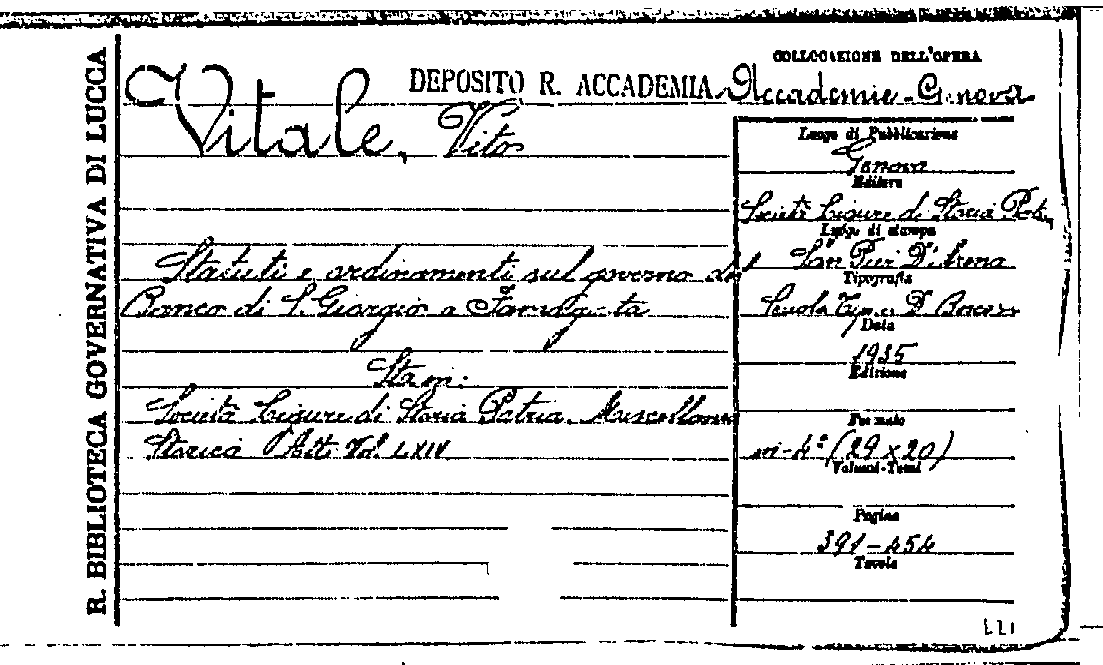 R. BIBLIOTECA GOVERNATIVA DI LUCCA
DEPOSITO R. ACCADEMIA
Vitale, Vito
Statuti e ordinamenti sul governo del
Banco di S. Giorgio a Famagosta
Sta in:
Società Ligure di Storia Patria. Miscellanea
Storica Atti Vol. LXIV
COLLOCAZIONE DELL'OPERA
Accademie-Genova
Luogo di Pubblicazione
Genova
Editore
Società Ligure di Storia Pat.
Luogo di stampa
San Pier D'Arena
Tipografia
Scuola Tip. D. Bosco
Data
1935
Edizione
Formato
in-4° (29 x 20)
Volumi-Tomi
Pagine
391-454
Tavole